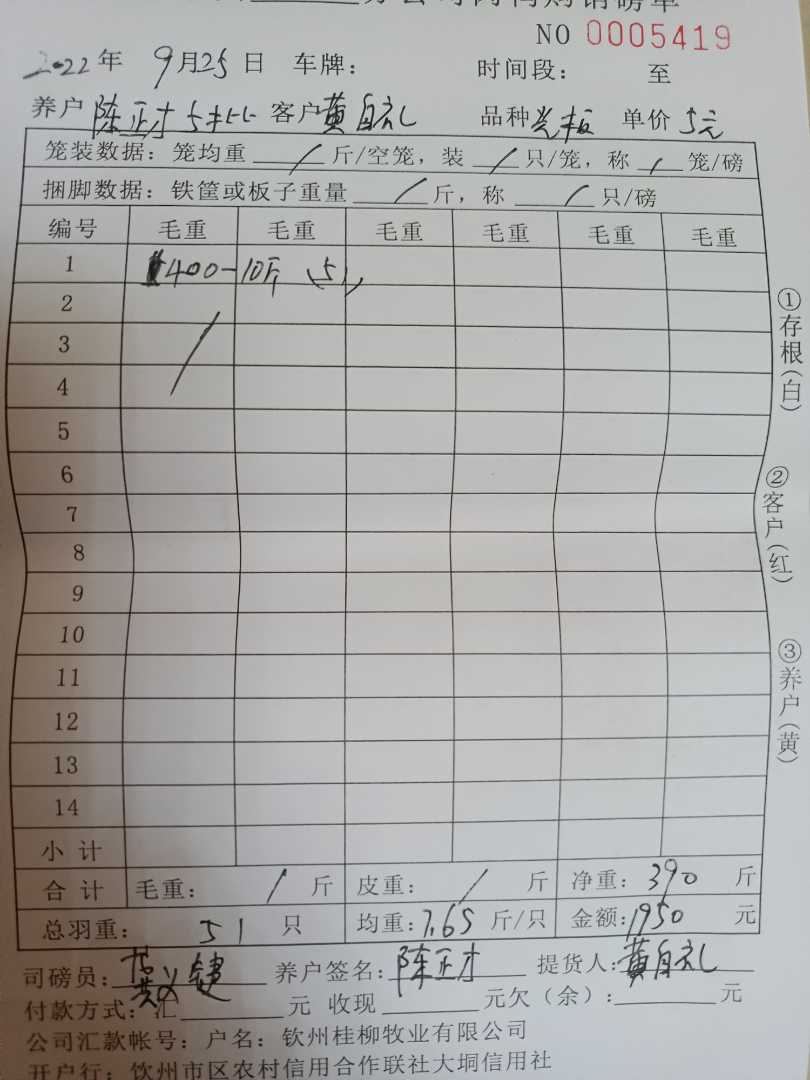 NO 0005419
2022年 9月25日 车牌： 时间段： 至
养户 陈正才5批 客户 黄自礼 品种 光板 单价 5元
笼装数据：笼均重 / 斤/空笼，装 / 只/笼，称 / 笼/磅
捆脚数据：铁筐或板子重量 / 斤，称 / 只/磅
编号 毛重 毛重 毛重 毛重 毛重 毛重
1 400-10斤 (51)
2
3
4
5
6
7
8
9
10
11
12
13
14
小计
合计 毛重： / 斤 皮重： / 斤 净重：390 斤
总羽重： 51 只 均重：7.65 斤/只 金额：1950 元
司磅员： 养户签名：陈正才 提货人：黄自礼
付款方式：汇 元 收现 元欠（余）： 元
公司汇款帐号：户名：钦州桂柳牧业有限公司
开户行：钦州市区农村信用合作联社大垌信用社
①存根（白）
②客户（红）
③养户（黄）